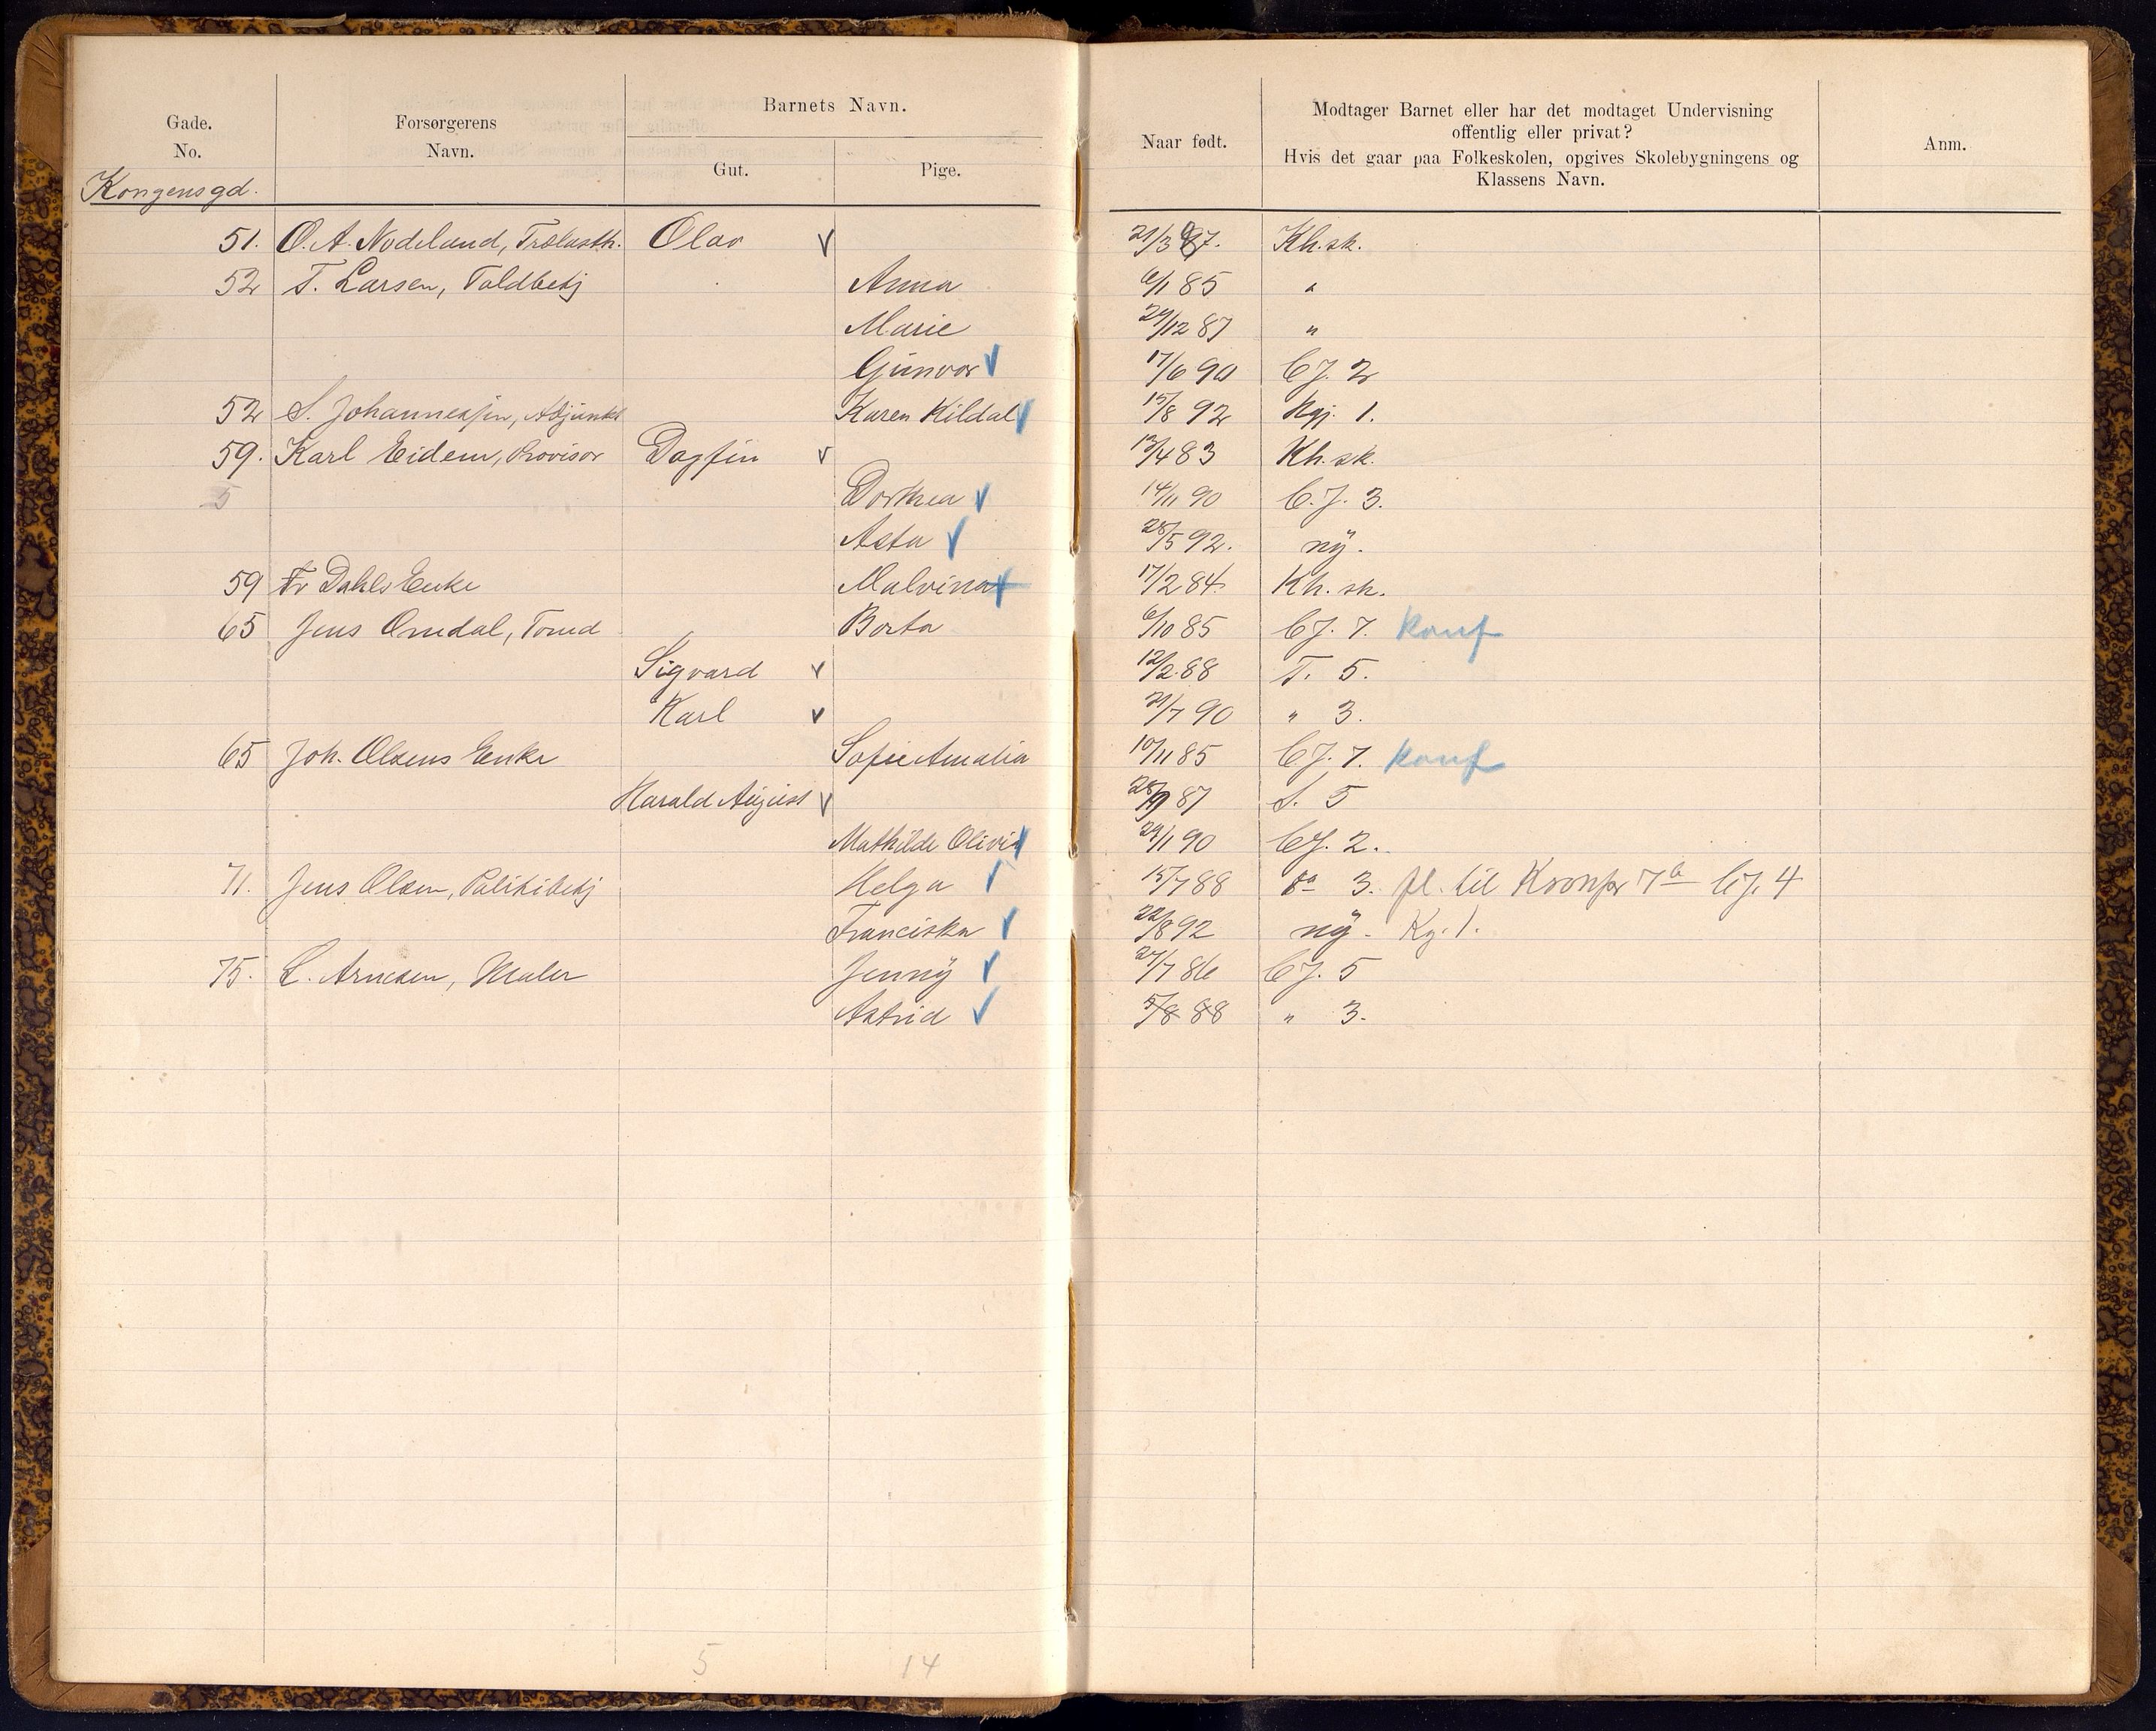 Gade.
No.
Forsørgerens
Navn.
Barnets Navn.
Gut.
Pige.
Naar født.
Modtager Barnet eller har det modtaget Undervisning
offentlig eller privat?
Hvis det gaar paa Folkeskolen, opgives Skolebygningens og
Klassens Navn.
Anm.
Kongensgd.
51. O. A. Nodeland, Trælasth. Olav 21/3 87. Kh. sk.
52 T. Larsen, Toldbetj Anna 6/1 85 "
Marie 29/12 87 "
Gunvor 17/6 90 CJ. 2
52 S. Johannessen, Adjunkt Karen Kildal 15/8 92 Kgj. 1.
59. Karl Eidem, Provisor Dagfin 13/4 83 Kh. sk.
5 Dorthea 14/11 90 C. J. 3.
Asta 28/5 92. ny.
59 Fr Dahls Enke Malvina 17/2 84. Kh. sk.
65 Jens Omdal, Tømd Borta 6/10 85 CJ. 7. konf
Sigvard 12/2 88 T. 5.
Karl 21/7 90 " 3.
65 Joh. Olsens Enke Sofie Amalia 10/11 85 CJ. 7. konf
Harald August 28/9 87 S. 5
Mathilde Olivia 29/1 90 CJ. 2.
71. Jens Olsen, Politibetj Helga 15/7 88 3. fl. til Kronpr 7 CJ. 4
Franciska 22/8 92 ny. Kg. 1.
75. L. Arnesen, Maler Jenny 27/7 86 CJ. 5
Astrid 5/8 88 " 3.
5 14